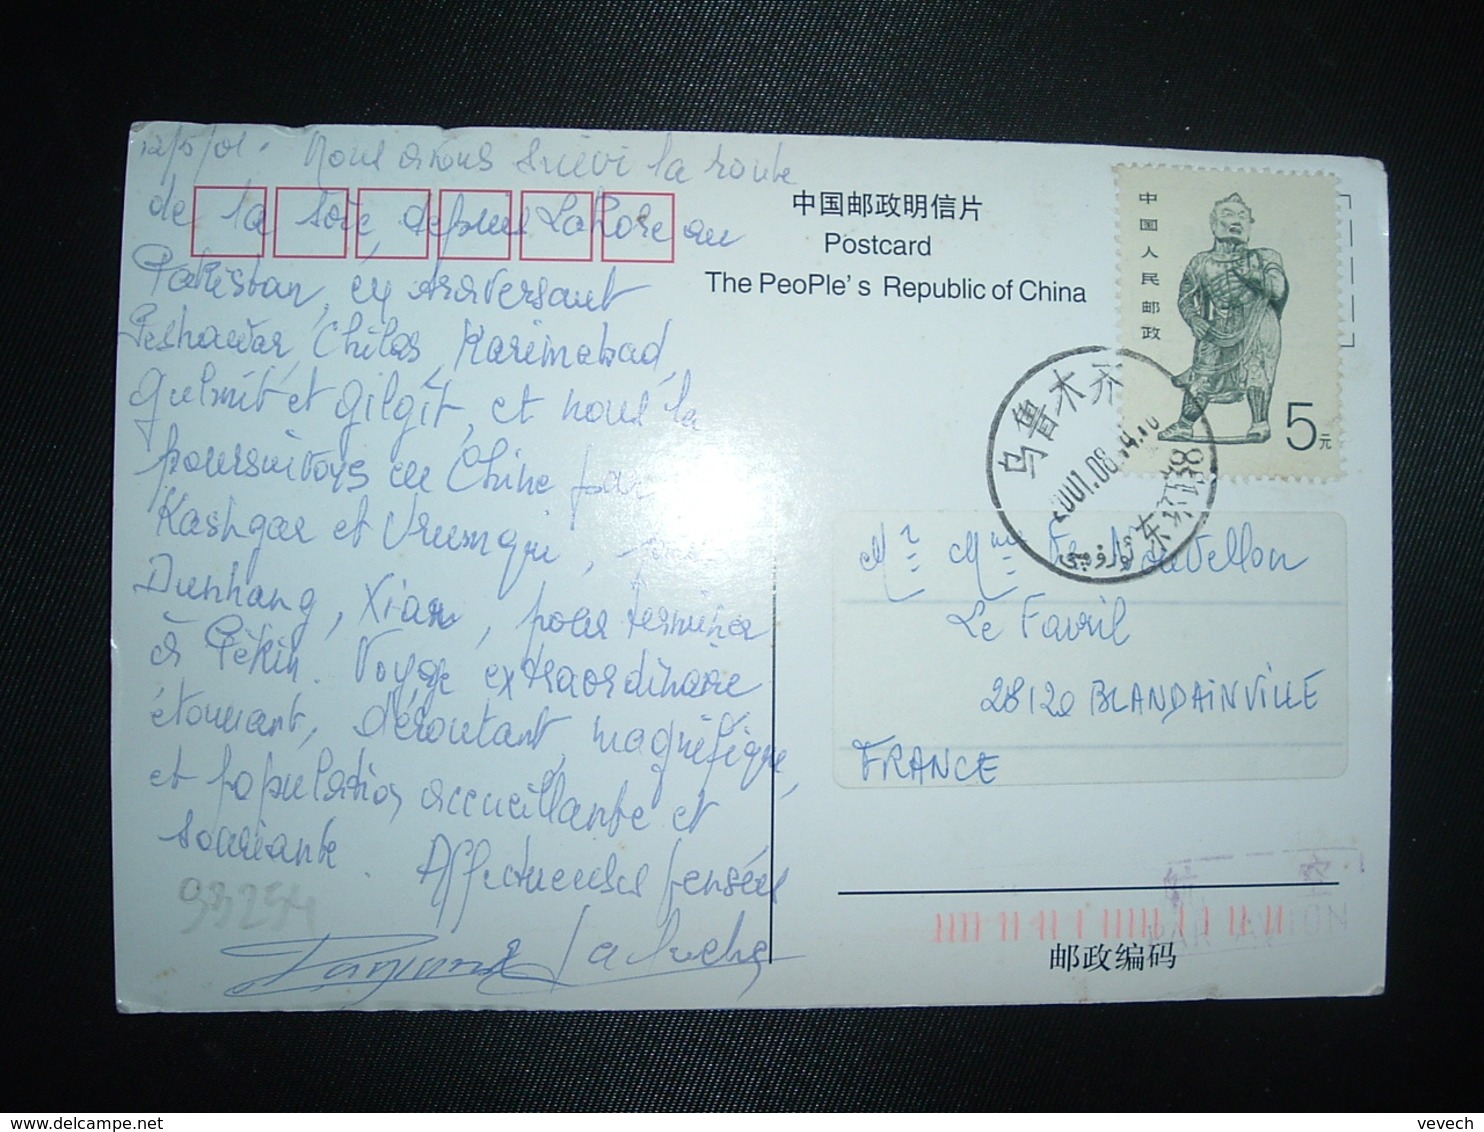 12/5/01. Nous avons suivi la route
de la soie, depuis Lahore au
Pakistan, en traversant
Peshawar, Chilas, Karimabad,
Gulmit et Gilgit, et nous la
poursuivons en Chine par
Kashgar et Urumqui,
Dunhang, Xian, pour terminer
à Pékin. Voyage extraordinaire
étonnant, déroutant, magnifique,
et population accueillante et
souriante. Affectueuses pensées
93254
中国邮政明信片
Postcard
The PeoPle's Republic of China
中国人民邮政
5元
乌鲁木齐
2001.08.14.10
Mr Mme
Le Favril
28120 BLANDAINVILLE
FRANCE
航空
PAR AVION
邮政编码
vevech